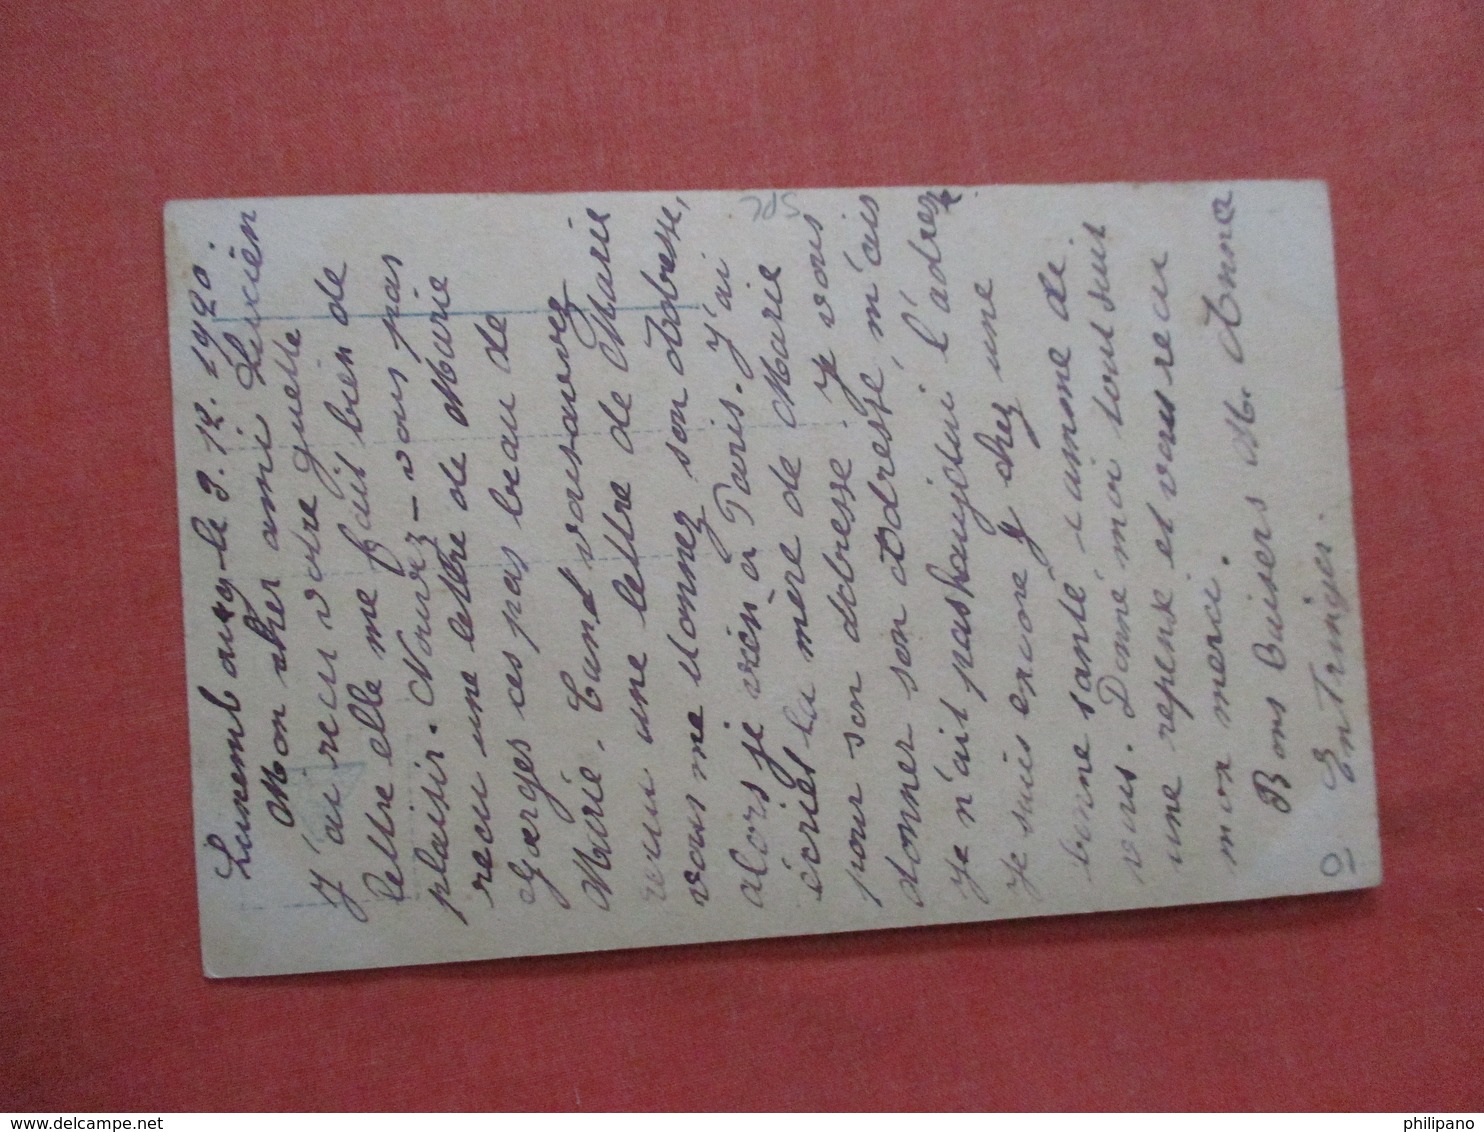 Luxembourg-le 9.12.1920.
Mon cher ami Lucien
J'ai recu votre guelle
lettre elle me fait bien de
plaisir. Nouvez-vous pas
recu une lettre de Marie
Gœrges ces pas beau de
Marie. Cand vousavez
recu une lettre de Marie
vous me donnez son Adresse,
alors je vien à Paris. J'ai
écries la mère de Marie
pour son Adresse. Je vous
donner son Adresse m'ais
je n'ait pashaujotui l'adres
Je suis encore y chez une
bonne santé l'aimme di
vous. Donné moi tout suit
une reponse et vous recu
mon merci.
Bons baisers M. Anna
Entringer.
SPL
10
philipano